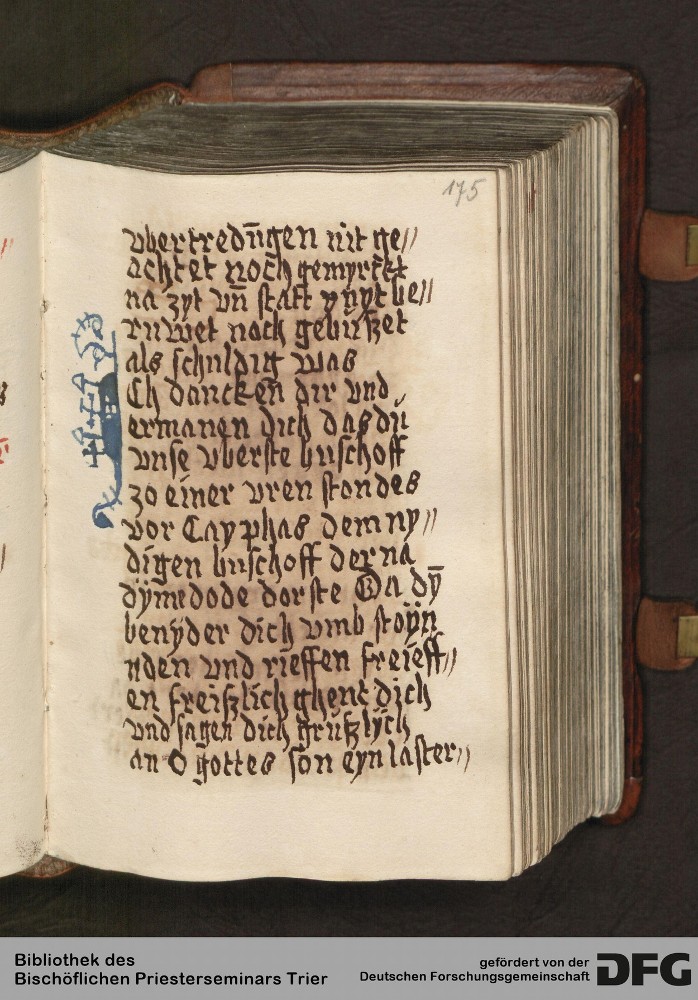 175
vbertredūgen nit ge//
achtet noch gemyrckt
na zyt vn̄ statt ynyt be//
ruwet noch gebüßet
als schuldig was
Ich dancken dir vnd
ermanen dich das dü
vnse vberste buschoff
zo einer vren stondes
vor Cayphas dem ny//
digen buschoff der na
dyme dode dorste Da dȳ
benyder dich vmb stoyn
nden vnd rieffen freieff//
en freißlich ghent dich
vnd sagen dich grüßlych
an O gottes son eyn laster//
Bibliothek des
Bischöflichen Priesterseminars Trier
gefördert von der
Deutschen Forschungsgemeinschaft
DFG